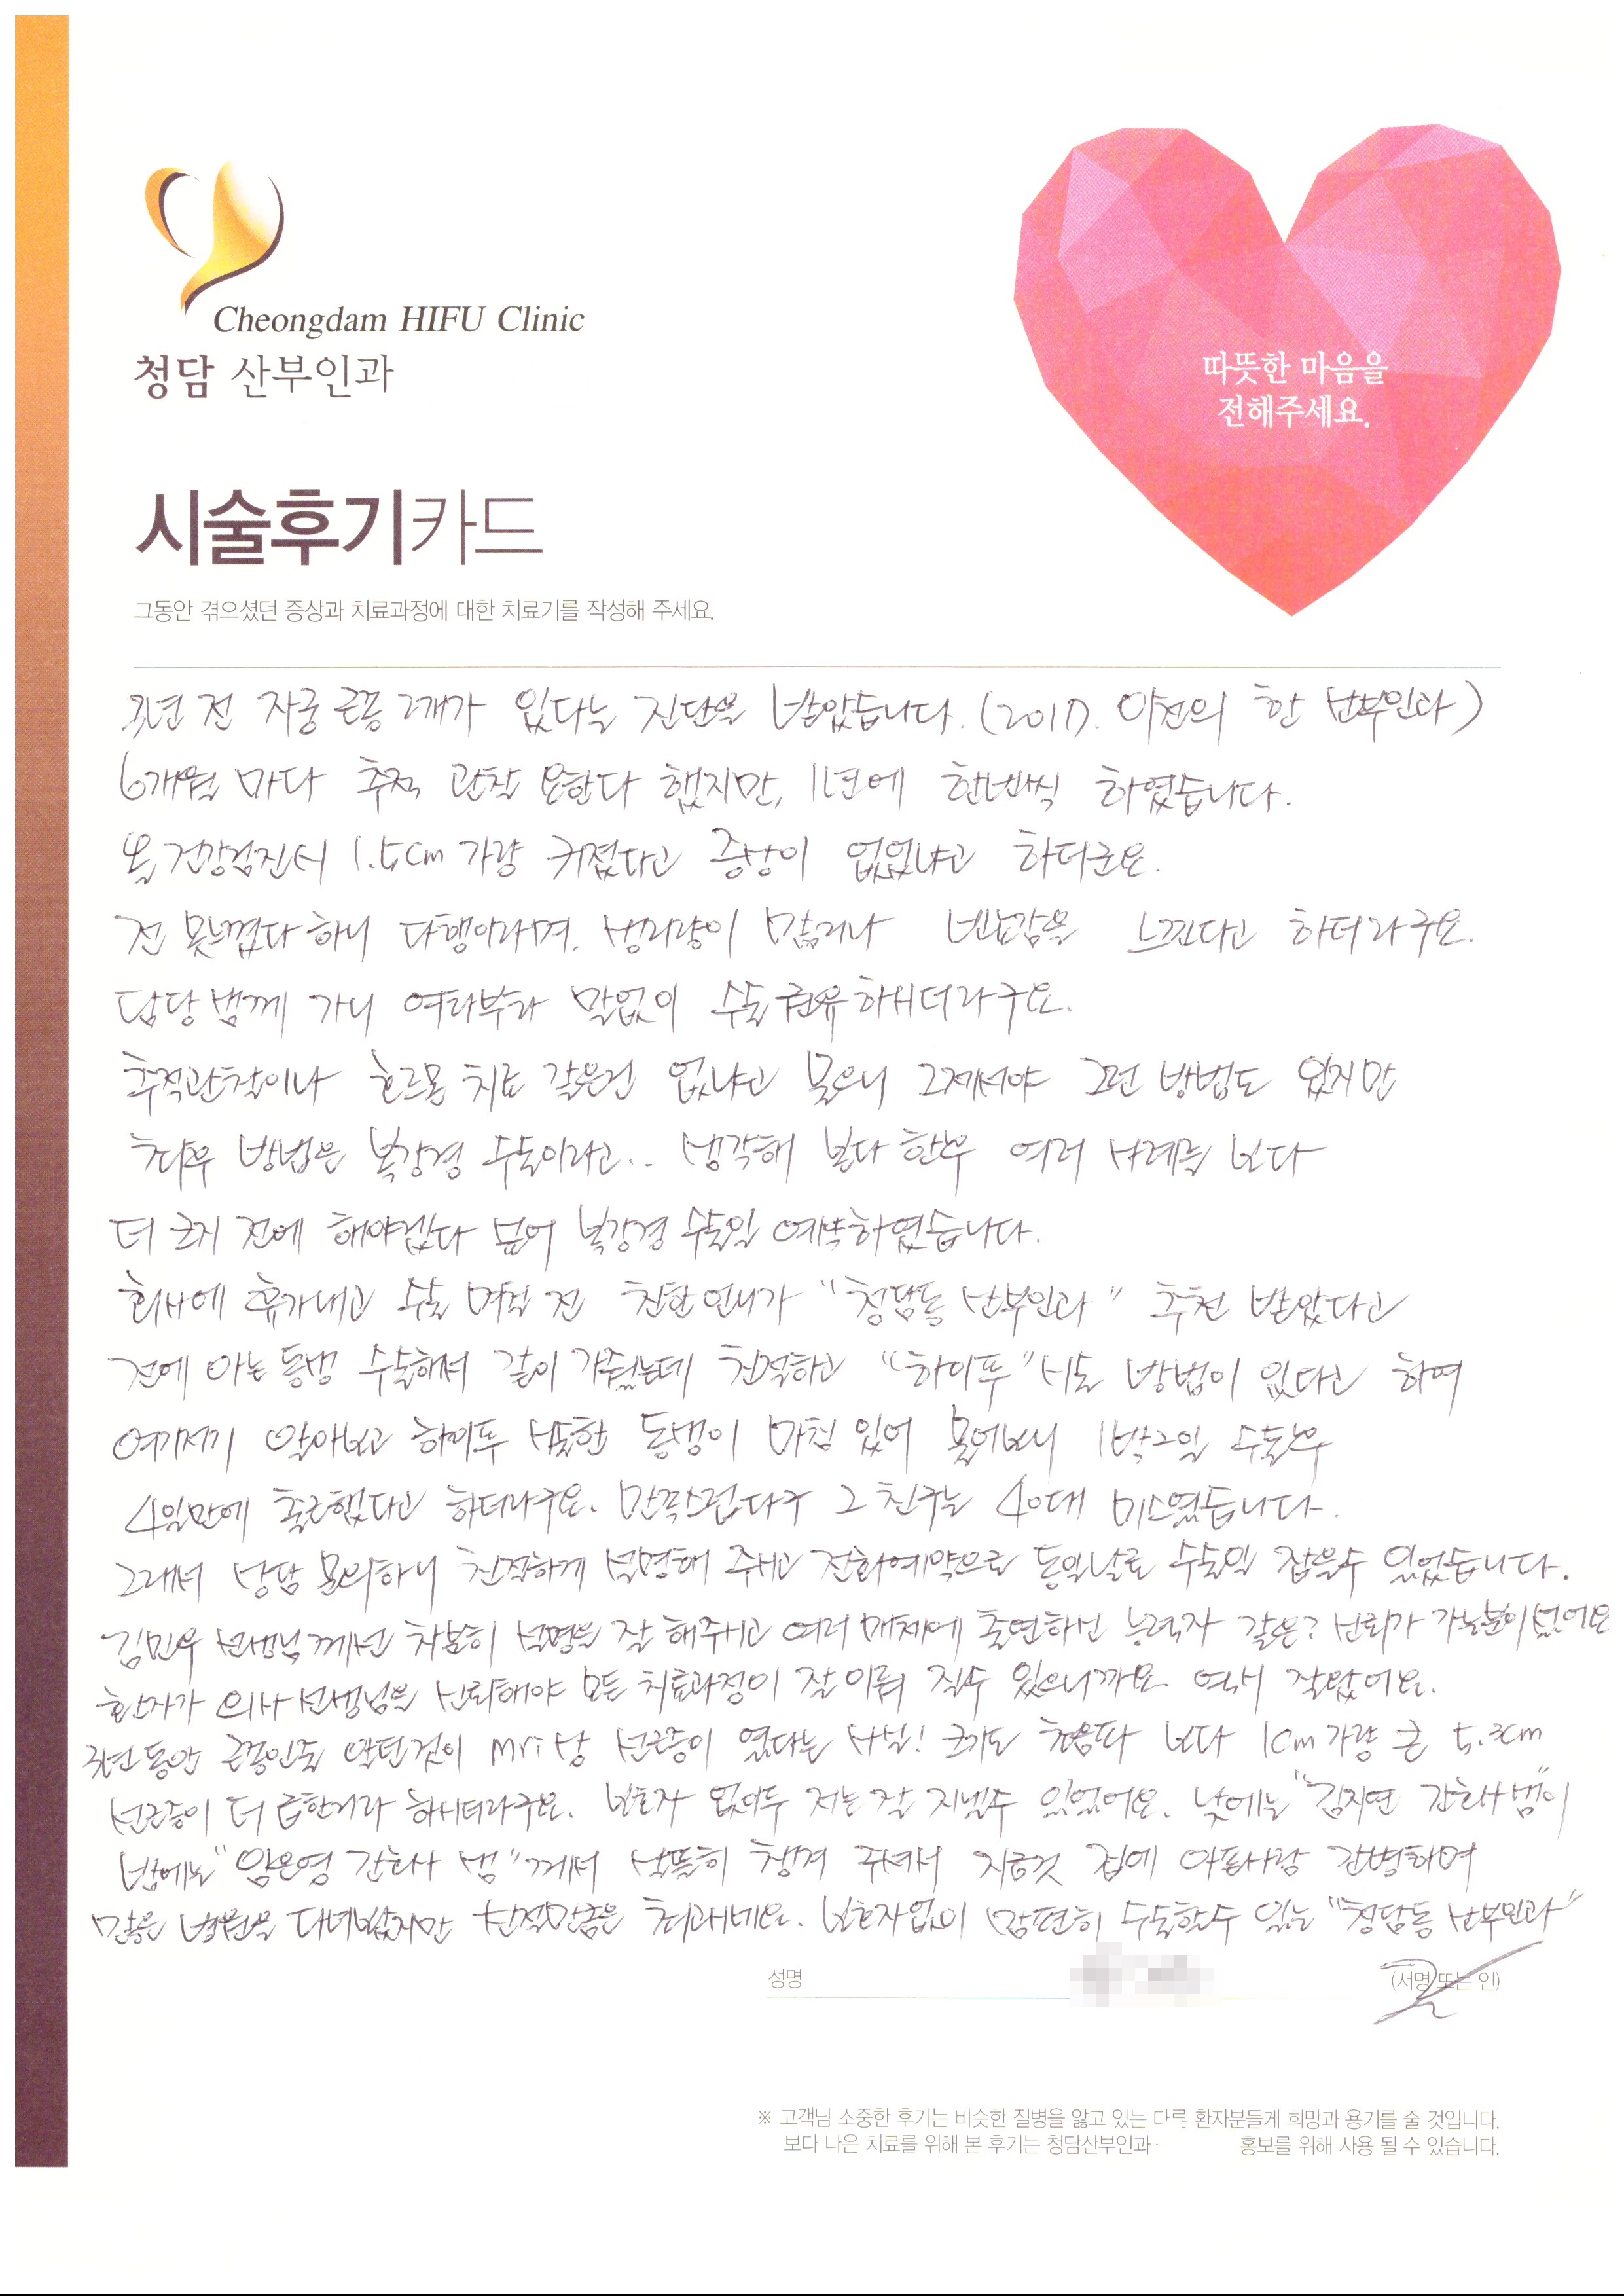 Cheongdam HIFU Clinic
청담 산부인과
따뜻한 마음을
전해주세요.
시술후기카드
그동안 겪으셨던 증상과 치료과정에 대한 치료기를 작성해 주세요.
3년 전 자궁 근종 2개가 있다는 진단을 받았습니다. (2017. 이천의 한 산부인과)
6개월 마다 추적 관찰 요한다 했지만, 1년에 한번씩 하였습니다.
올 건강검진서 1.5cm 가량 커졌다고 증상이 없었냐고 하더군요.
전 못느꼈다 하니 다행이라며. 생리량이 많거나 빈뇨감을 느낀다고 하더라구요.
담당쌤께 가니 여타부타 말없이 수술 권유하시더라구요.
추적관찰이나 호르몬 치료 같은건 없냐고 물으니 그제서야 그런 방법도 있지만
최우 방법은 복강경 수술이라고.. 생각해 보다 한후 여러 사례를 보다
더 크기 전에 해야겠다 싶어 복강경 수술일 예약하였습니다.
회사에 휴가내고 수술 며칠 전 친한 언니가 "청담동 산부인과" 추천 받았다고
전에 아는 동생 수술해서 같이 가줬는데 친절하고 "하이푸"시술 방법이 있다고 하여
여기저기 알아보고 하이푸 시술한 동생이 마침 있어 물어보니 1박2일 수술후
4일만에 출근했다고 하더라구요. 만족스럽다구 그 친구는 40대 미스였습니다.
그래서 상담 문의하니 친절하게 설명해 주시고 전화예약으로 동일날로 수술일 잡을수 있었습니다.
김민우 선생님께선 차분히 설명을 잘 해주시고 여러 매체에 출연하신 능력자 같은? 신뢰가 가는분이셨어요
환자가 의사선생님을 신뢰해야 모든 치료과정이 잘 이뤄 질수 있으니까요. 역시 잘왔어요.
3년 동안 근종인줄 알던것이 mri상 선근증이 였다는 사실! 크기도 처음때 보다 1cm가량 큰 5.3cm
선근증이 더 급한거라 하시더라구요. 보호자 없이두 저는 잘 지낼수 있었어요. 낮에는 "김지연 간호사쌤"이
밤에는 "임은영 간호사 쌤"께서 살뜰히 챙겨 주셔서 지금껏 집에 아픈사람 간병하며
많은 병원을 다녀봤지만 친절만큼은 최고네요. 보호자없이 맘편히 수술할수 있는 "청담동 산부인과"
성명
(서명 또는 인)
※ 고객님 소중한 후기는 비슷한 질병을 앓고 있는 다른 환자분들게 희망과 용기를 줄 것입니다.
보다 나은 치료를 위해 본 후기는 청담산부인과 홍보를 위해 사용 될 수 있습니다.